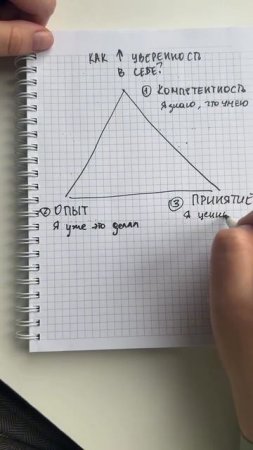 КАК ↑ УВЕРЕННОСТЬ
В СЕБЕ?
① КОМПЕТЕНТНОСТЬ
Я знаю, что умею
② ОПЫТ
Я уже это делал
③ ПРИНЯТИЕ
Я ценн